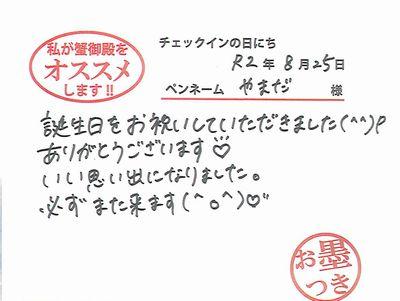 私が蟹御殿を
オススメ
します!!
チェックインの日にち
R2年 8月25日
ペンネーム やまだ 様
誕生日をお祝いしていただきました(^^)♪
ありがとうございます♡
いい思い出になりました。
必ずまた来ます(^o^)♡"
お墨
つき